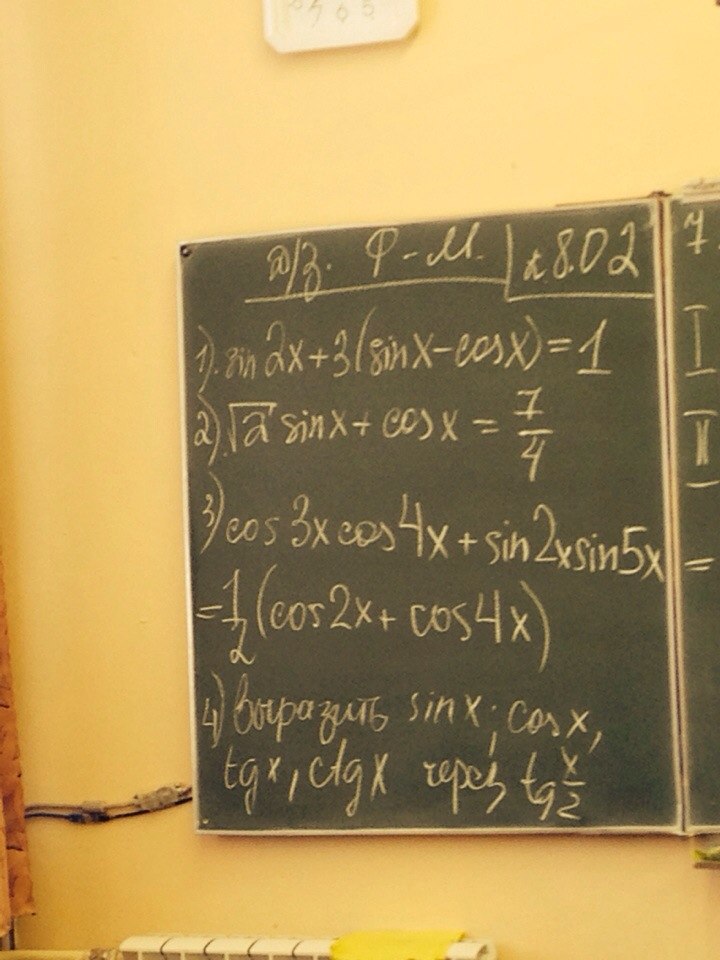 д/з. Ф-М. 8.02
1). sin 2x + 3(sin x - cos x) = 1
2). √2 sin x + cos x = 7/4
3) cos 3x cos 4x + sin 2x sin 5x =
= 1/2 (cos 2x + cos 4x)
4) выразить sin x; cos x,
tg x, ctg x через tg x/2
7
I
II